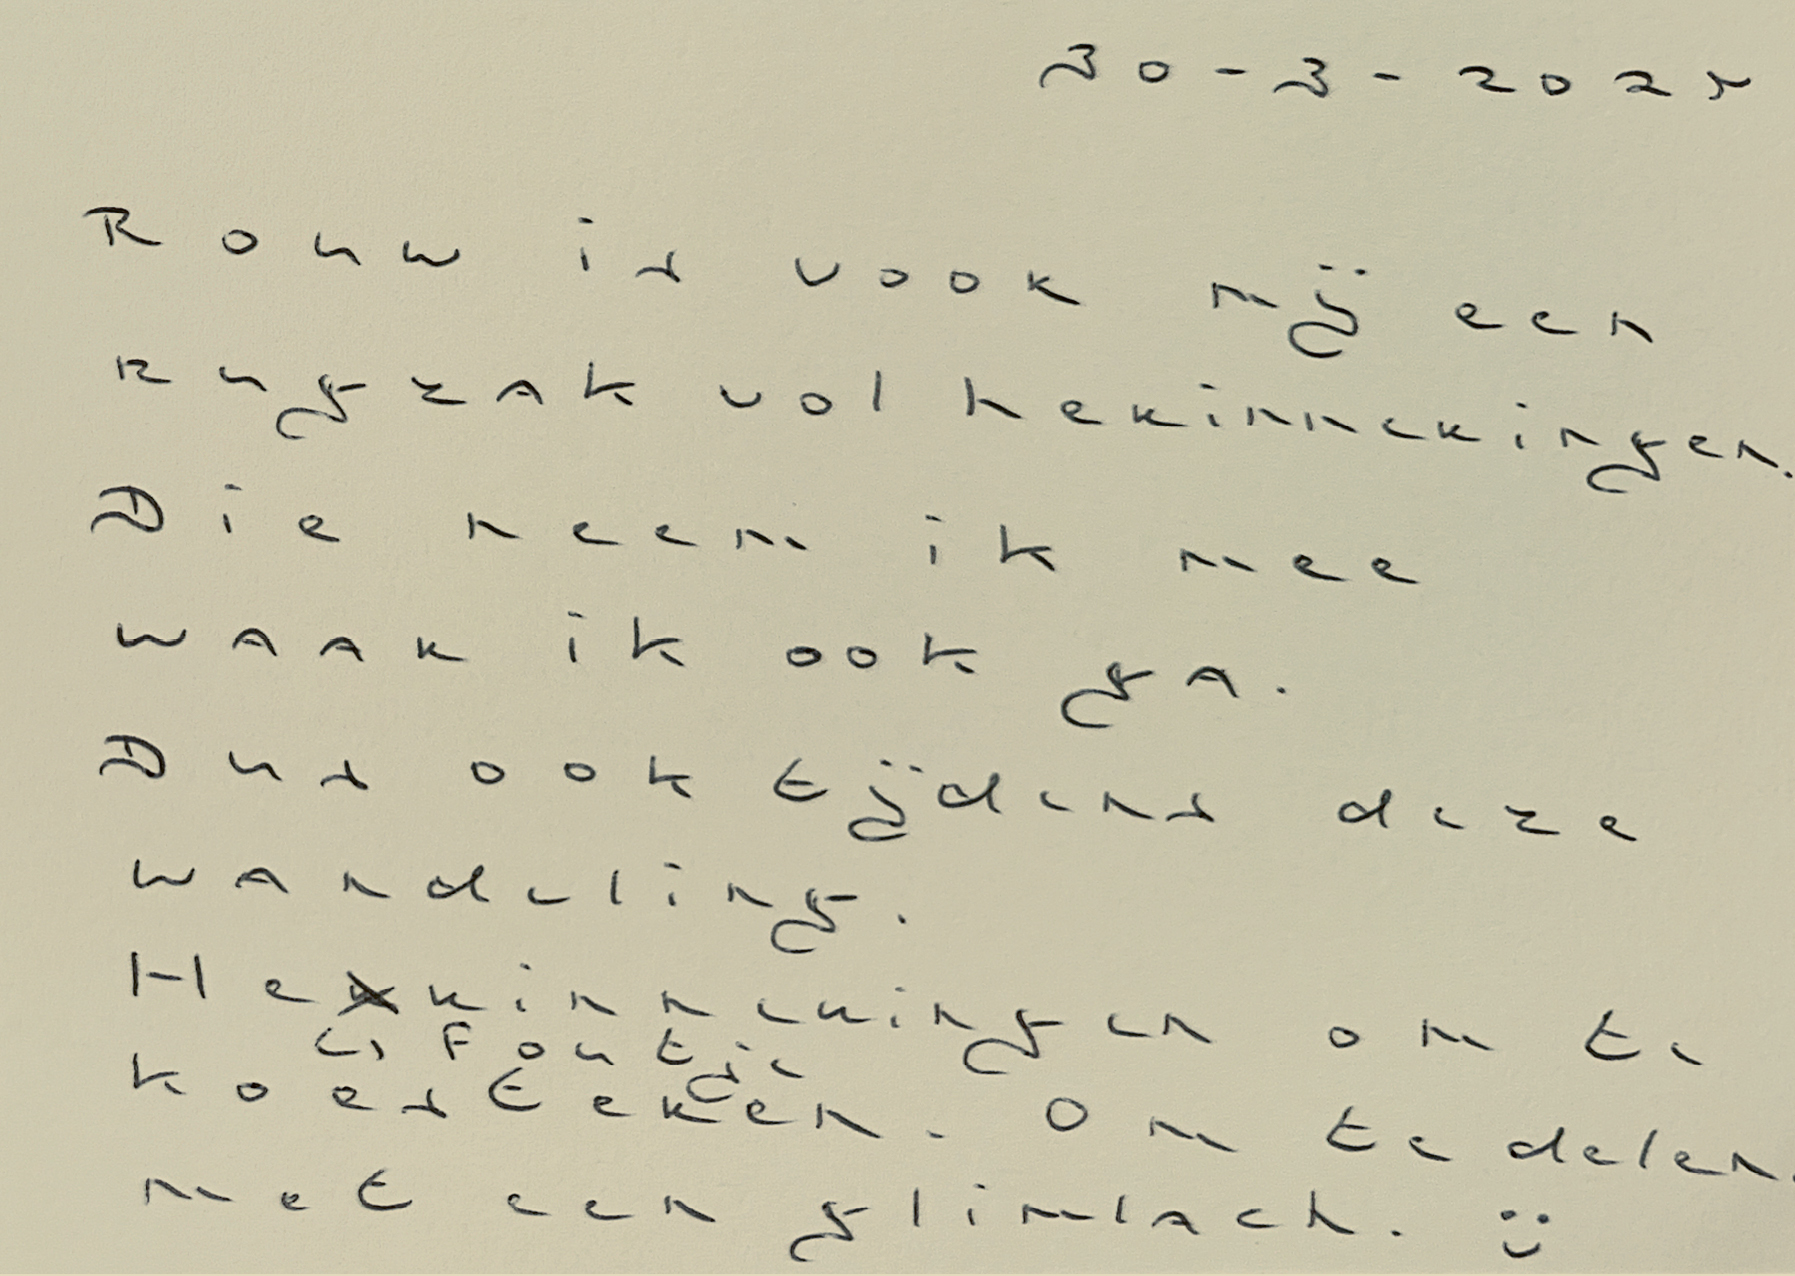 30-3-2025
Rouw is voor mij een
rugzak vol herinneringen.
Die neem ik mee
waar ik ook ga.
Dus ook tijdens deze
wandeling.
Herinneringen om te
↳ foutje
koesteren. Om te delen.
met een glimlach. :)